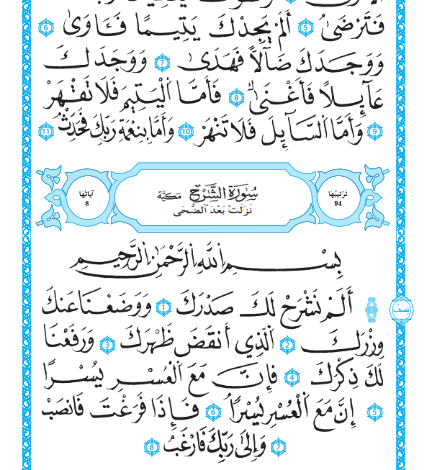 فَتَرْضَىٰٓ ٥ أَلَمْ يَجِدْكَ يَتِيمًا فَـَٔاوَىٰ ٦
وَوَجَدَكَ ضَآلًّا فَهَدَىٰ ٧ وَوَجَدَكَ
عَآئِلًا فَأَغْنَىٰ ٨ فَأَمَّا ٱلْيَتِيمَ فَلَا تَقْهَرْ
٩ وَأَمَّا ٱلسَّآئِلَ فَلَا تَنْهَرْ ١٠ وَأَمَّا بِنِعْمَةِ رَبِّكَ فَحَدِّثْ ١١
تَرْتِيبُهَا 94 سُورَةُ الشَّرْحِ مَكِّيَّة آيَاتُهَا 8
نَزَلَتْ بَعْدَ الضُّحَى
بِسْمِ ٱللَّهِ ٱلرَّحْمَٰنِ ٱلرَّحِيمِ
أَلَمْ نَشْرَحْ لَكَ صَدْرَكَ ١ وَوَضَعْنَا عَنكَ
نصف
وِزْرَكَ ٢ ٱلَّذِىٓ أَنقَضَ ظَهْرَكَ ٣ وَرَفَعْنَا
لَكَ ذِكْرَكَ ٤ فَإِنَّ مَعَ ٱلْعُسْرِ يُسْرًا
٥ إِنَّ مَعَ ٱلْعُسْرِ يُسْرًا ٦ فَإِذَا فَرَغْتَ فَٱنصَبْ
٧ وَإِلَىٰ رَبِّكَ فَٱرْغَب ٨